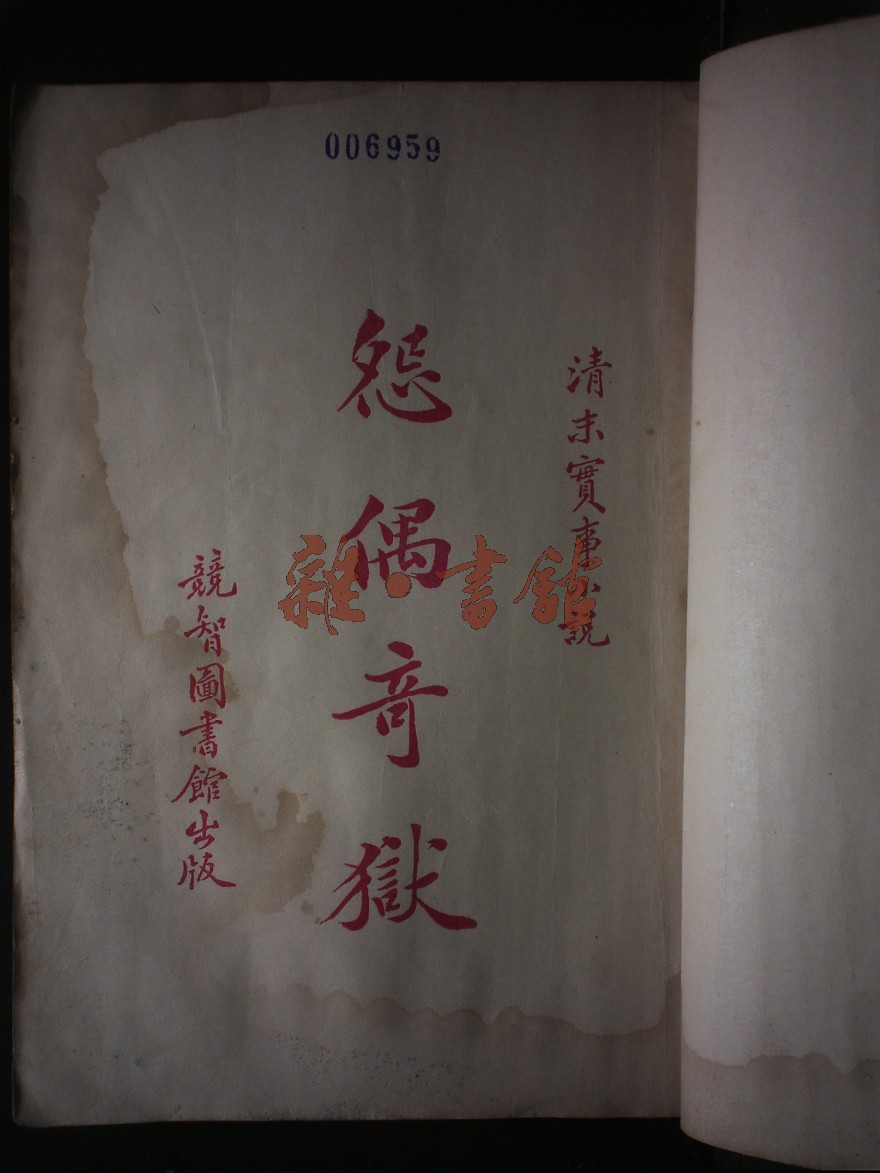 006959
清末實事小說
怨偶奇獄
競智圖書館出版
雜·書館